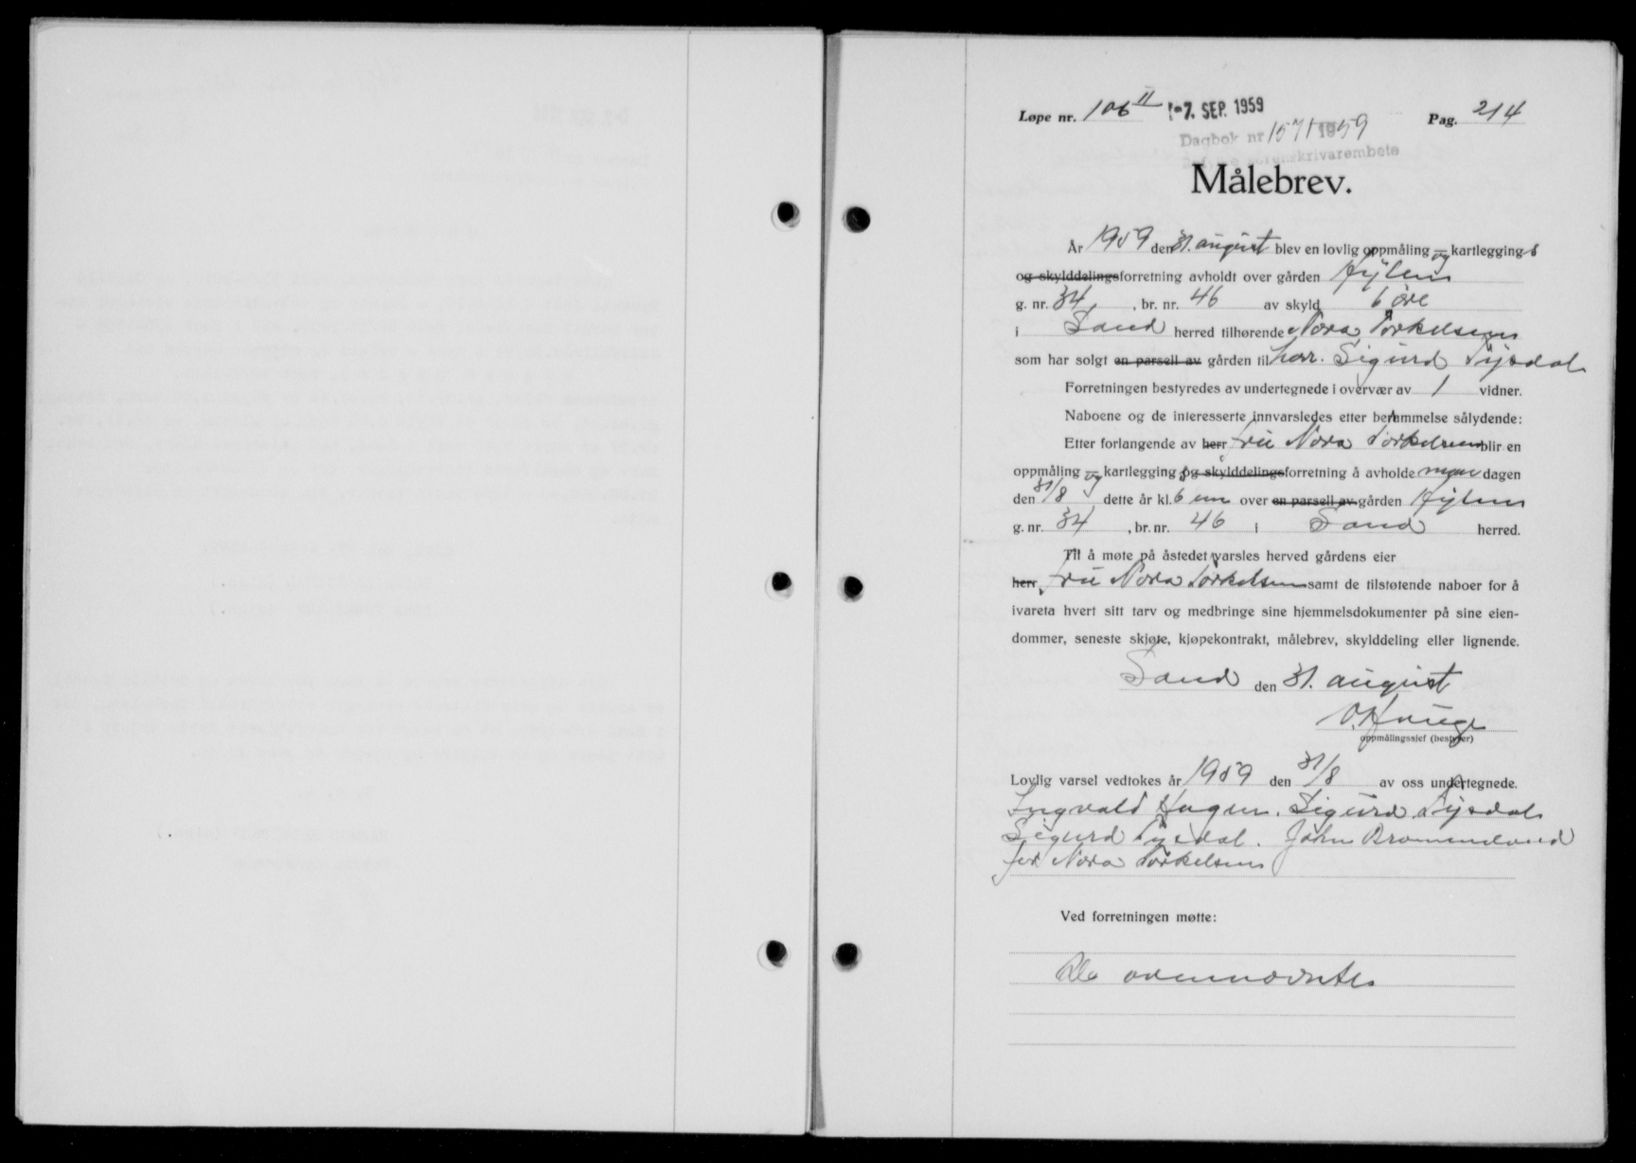 Løpe nr. 106 II - 7. SEP. 1959 Pag. 214
Dagbok nr 1571 1959
sorenskrivarembete
Målebrev.
År 1959 den 31. august blev en lovlig oppmåling og kartleggings
og skylddelingsforretning avholdt over gården Høylum
g. nr. 34, br. nr. 46 av skyld 6 øre
i Sand herred tilhørende Nora Torkelsen
som har solgt en parsell av gården til herr. Sigurd Tysdal
Forretningen bestyredes av undertegnede i overvær av 1 vidner.
Naboene og de interesserte innvarsledes etter berammelse sålydende:
Etter forlangende av herr fru Nora Torkelsen blir en
oppmåling og kartlegging og skylddelingsforretning å avholde mandagen
den 31/8 dette år kl. 6 em over en parsell av gården
g. nr. 34, br. nr. 46 i Sand herred.
Til å møte på åstedet varsles herved gårdens eier
herr fru Nora Torkelsen samt de tilstøtende naboer for å
ivareta hvert sitt tarv og medbringe sine hjemmelsdokumenter på sine eien-
dommer, seneste skjøte, kjøpekontrakt, målebrev, skylddeling eller lignende.
Sand den 31. august
O. Hauge
oppmålingssjef (bestyrer)
Lovlig varsel vedtokes år 1959 den 31/8 av oss undertegnede.
Ingvald Hagen. Sigurd Tysdal
Sigurd Tysdal. John
for Nora Torkelsen
Ved forretningen møtte:
De ovennevnte